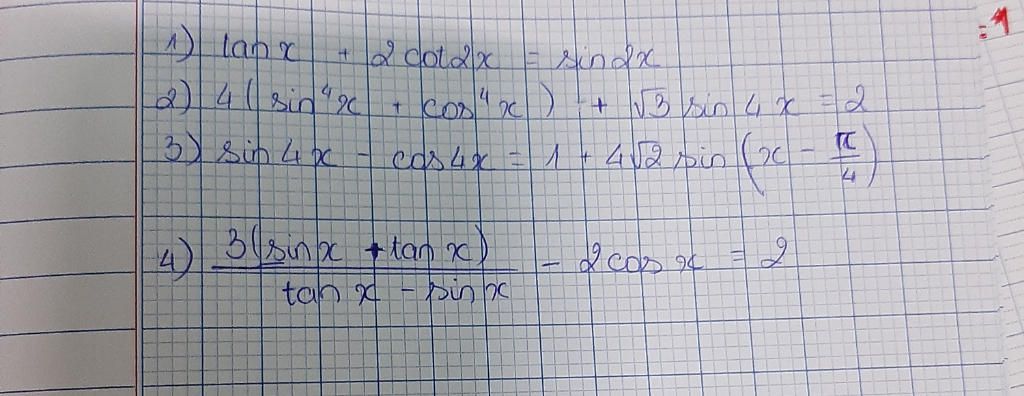 = 1
1) tan x + 2cot2x = sin2x
2) 4(sin⁴x + cos⁴x) + √3 sin 4x = 2
3) sin4x - cos4x = 1 + 4√2 sin(x - π/4)
4) 3(sin x + tan x) / (tan x - sin x) - 2cos x = 2